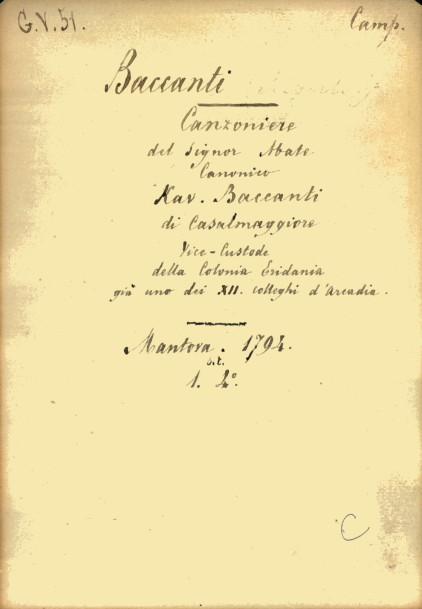 G.V.51.
Camp.
Baccanti
Canzoniere
del Signor Abate
Canonico
Kav. Baccanti
di Casalmaggiore
Vice-Custode
della Colonia Eridania
già uno dei XII. colleghi d'Arcadia.
Mantova. 1794.
1. 2º.
C